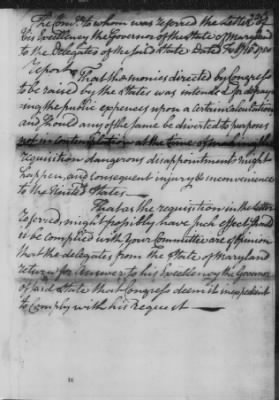 The Com.ee to whom was referred the Letter of
his Excellency the Governor of the State of Maryland
to the Delegates of the said State Dated Feb.
Report
That the monies directed by Congress
to be raised by the States was intended for defray
ing the public expences upon a certain Calculation
and should any of the same be diverted to purposes
not in contemplation at the time of making the
requisition dangerous disappointments might
happen, and consequent injury & inconvenience
to the United States
That as the requisition in the letter
referred, might possibly have such effect should
it be complied with Your Committee are of opinion
that the delegates from the State of Maryland
return for Answer to his Excellency the Governor
of said State that Congress deem it inexpedient
to Comply with his request